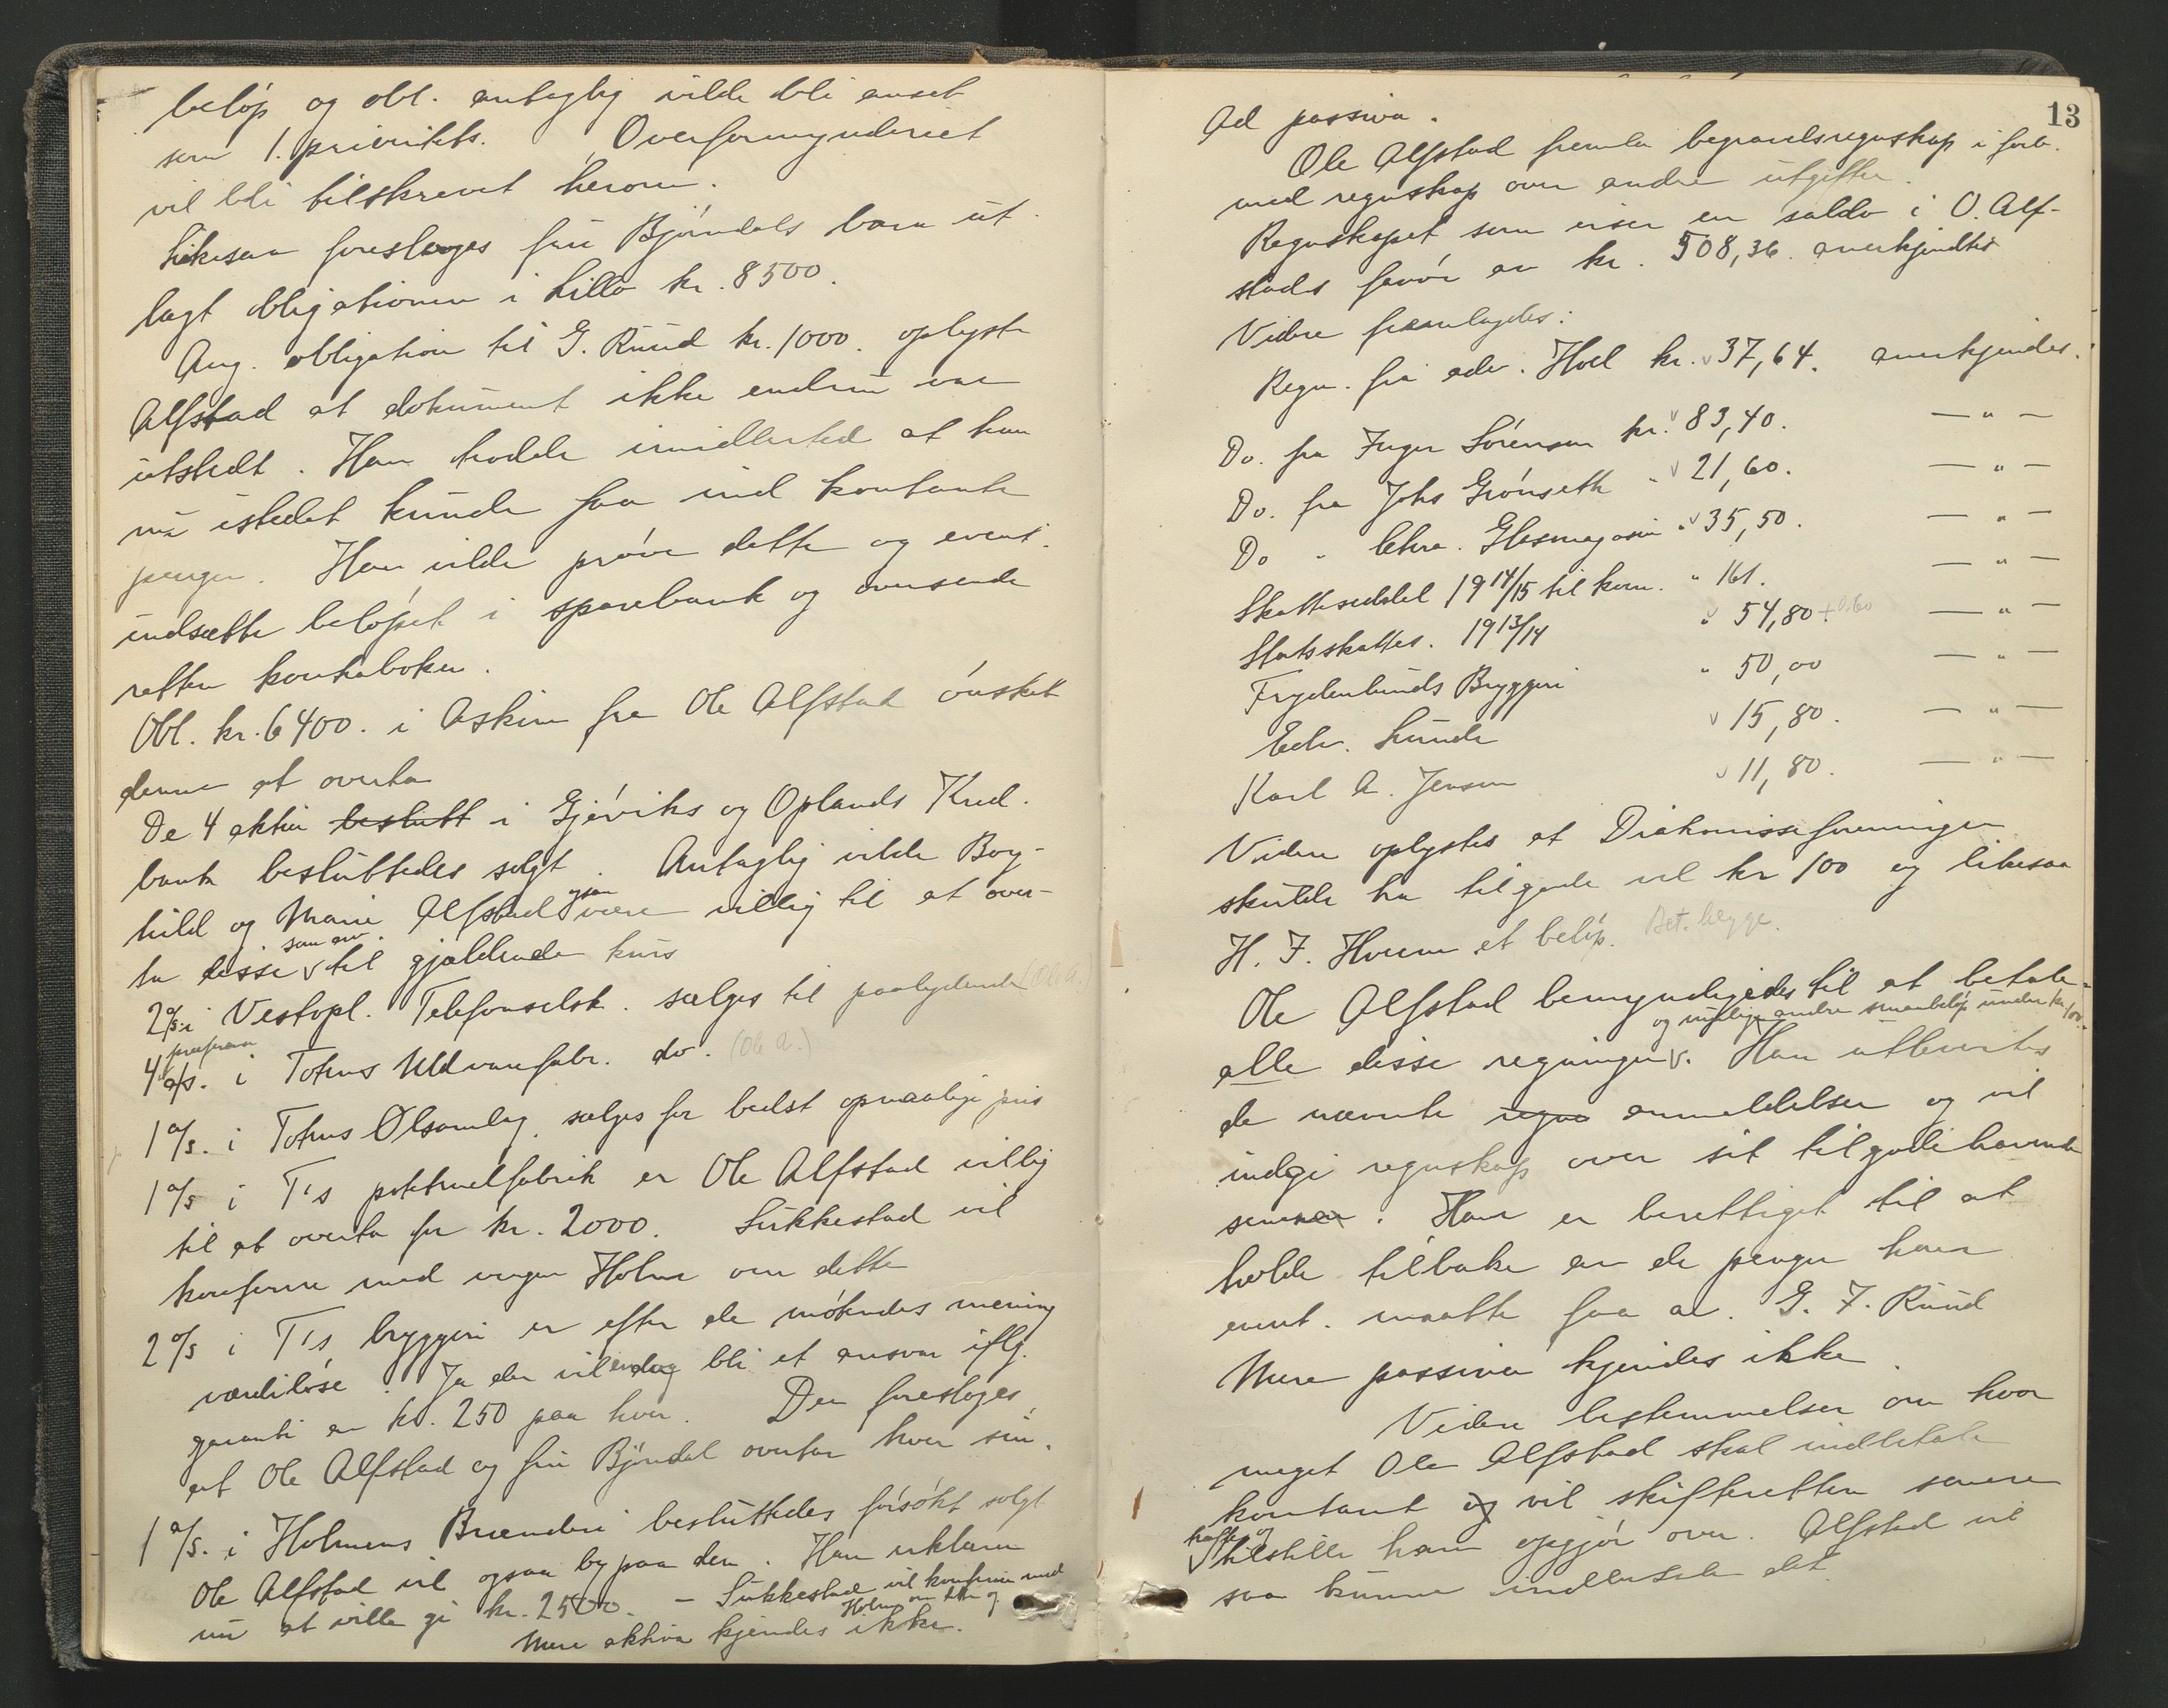 beløp og obl. antaglig vilde bli anset
som 1. prioritets. Overformynderiet
vil bli tilskrevet herom.
Likesaa foresloges fru Bjørndals barn ut-
lagt obligationen i Lillo kr. 8500.
Ang. obligation til G. Ruud kr. 1000. oplyste
Alfstad at dokument ikke endnu var
utstedt. Han trodde imidlertid at han
nu istedet kunde faa ind kontante
penger. Han vilde prøve dette og event.
indsætte beløpet i sparebank og oversende
retten kontraboken.
Obl. kr. 6400. i Askim fra Ole Alfstad ønsket
denne at overta
De 4 aktier beslutt i Gjøviks og Oplands Kred.
bank besluttedes solgt. Antaglig vilde Borg-
hild og Marie Alfstad ogsaa være villig til at over-
ta disse som arv. til gjældende kurs
2 a/s. i Vestopl. Telefonselsk. sælges til paalydende (Ole A.)
4 præferan a/s. i Totens Uldvarefabr. do. (Ole A.)
1 a/s. i Totens Ølsamlag. sælges for bedst opnaaelige pris
1 a/s i T's potetmelfabrik er Ole Alfstad villig
til at overta for kr. 2000. Sukkestad vil
konferere med verge Holme om dette
2 a/s i T's bryggeri er efter de mötendes mening
værdiløse. Ja der vil endog bli et ansvar iflg.
garanti av kr. 250 paa hver. Der foresloges
at Ole Alfstad og fru Bjørndal overtar hver sin.
1 a/s. i Holmens Brænderi besluttedes försökt solgt
Ole Alfstad vil ogsaa by paa den. Han erklærer
nu at ville gi kr. 2500. – Sukkestad vil konferere med
Holme om dette og
Mere aktiva kjendes ikke.
13
Ad passiva.
Ole Alfstad fremla begravelsregnskap i forb.
med regnskap over andre utgifter.
Regnskapet som viser en saldo i O. Alf-
stads favør av kr. 508,36. anerkjendtes
Videre fremlagdes:
Regn. fra adv. Hoel kr. 37,64. anerkjendes.
Do. fra Inger Sørensen kr. 83,40. — " —
Do. fra Johs Grønseth " 21,60. — " —
Do " Glasmagasin " 35,50. — " —
Skatteseddel 1914/15 til kom. " 161. — " —
Statsskattes. 1913/14 " 54,80. + 0.60 — " —
Frydenlunds Bryggeri " 50,00 — " —
Edv. Lunde 15,80. — " —
Karl A. Jensen 11,80. — " —
Videre oplystes at Diakonisseforeningen
skulde ha tilgode vel kr 100 og likesaa
H. F. Hveem et beløp. Bet. begge.
Ole Alfstad bemyndigedes til at betale
og mulige andre smaabeløp under kr. 100.-
alle disse regninger. Han utlevertes
de nævnte regn anmeldelser og vil
indgi regnskap over sit tilgodehavende
senere. Han er berettiget til at
holde tilbake av de penger han
event. maatte faa av G. F. Ruud
Mere passiva kjendes ikke.
Videre bestemmelser om hvor
meget Ole Alfstad skal indbetale
kontant og vil skifteretten senere
træffe og
tilstille ham opgjør over. Alfstad vil
saa kunne indbetale det.